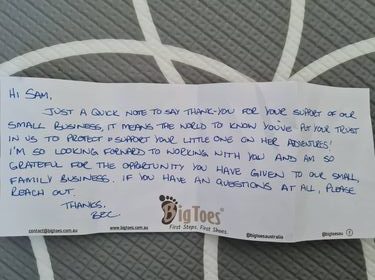 HI SAM,
JUST A QUICK NOTE TO SAY THANK-YOU FOR YOUR SUPPORT OF OUR
SMALL BUSINESS, IT MEANS THE WORLD TO KNOW YOU'VE PUT YOUR TRUST
IN US TO PROTECT & SUPPORT YOUR LITTLE ONE ON HER ADVENTURES!
I'M SO LOOKING FORWARD TO WORKING WITH YOU AND AM SO
GRATEFUL FOR THE OPPORTUNITY YOU HAVE GIVEN TO OUR SMALL,
FAMILY BUSINESS. IF YOU HAVE AN QUESTIONS AT ALL, PLEASE
REACH OUT.
THANKS,
BigToes
First Steps, First Shoes.
contact@bigtoes.com.au
www.bigtoes.com.au
@bigtoesaustralia
@bigtoesau